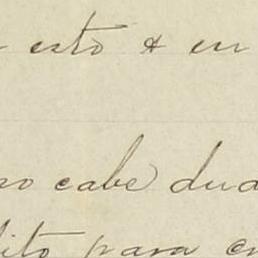 esto & en
no cabe dud
ito para en